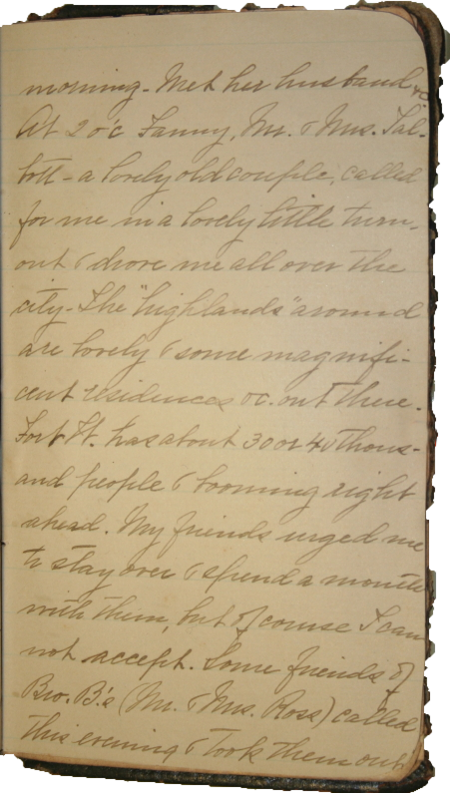 morning. Met her husband &c
At 2 o'c Fanny, Mr. & Mrs. Tal-
bott - a lovely old couple, called
for me in a lovely little turn-
out & drove me all over the
city. The "highlands" around
are lovely & some magnifi-
cent residences &c. out there.
Fort W. has about 30 or 40 thous-
and people & booming right
ahead. My friends urged me
to stay over & spend a month
with them, but of course I can
not accept. Some friends of
Bro. B.'s (Mr. & Mrs. Ross) called
this evening & took them out